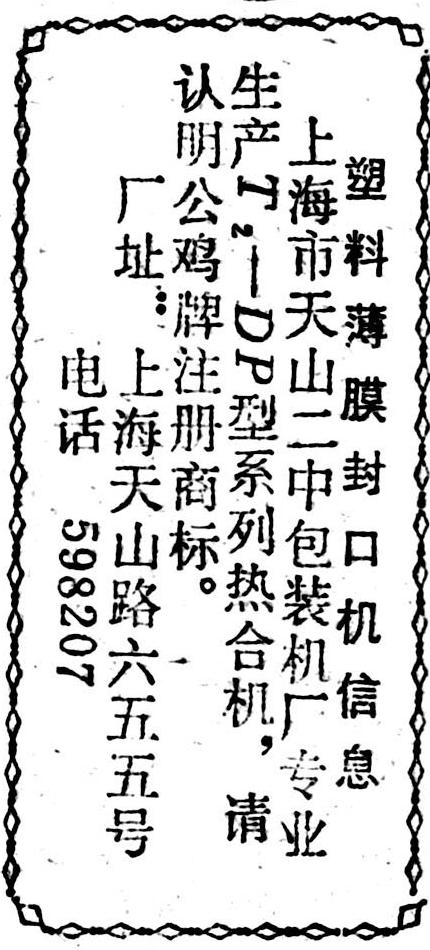 塑料薄膜封口机信息
上海市天山二中包装机厂专业
生产T₂—DP型系列热合机，请
认明公鸡牌注册商标。
厂址：上海天山路六五五号
电话 598207